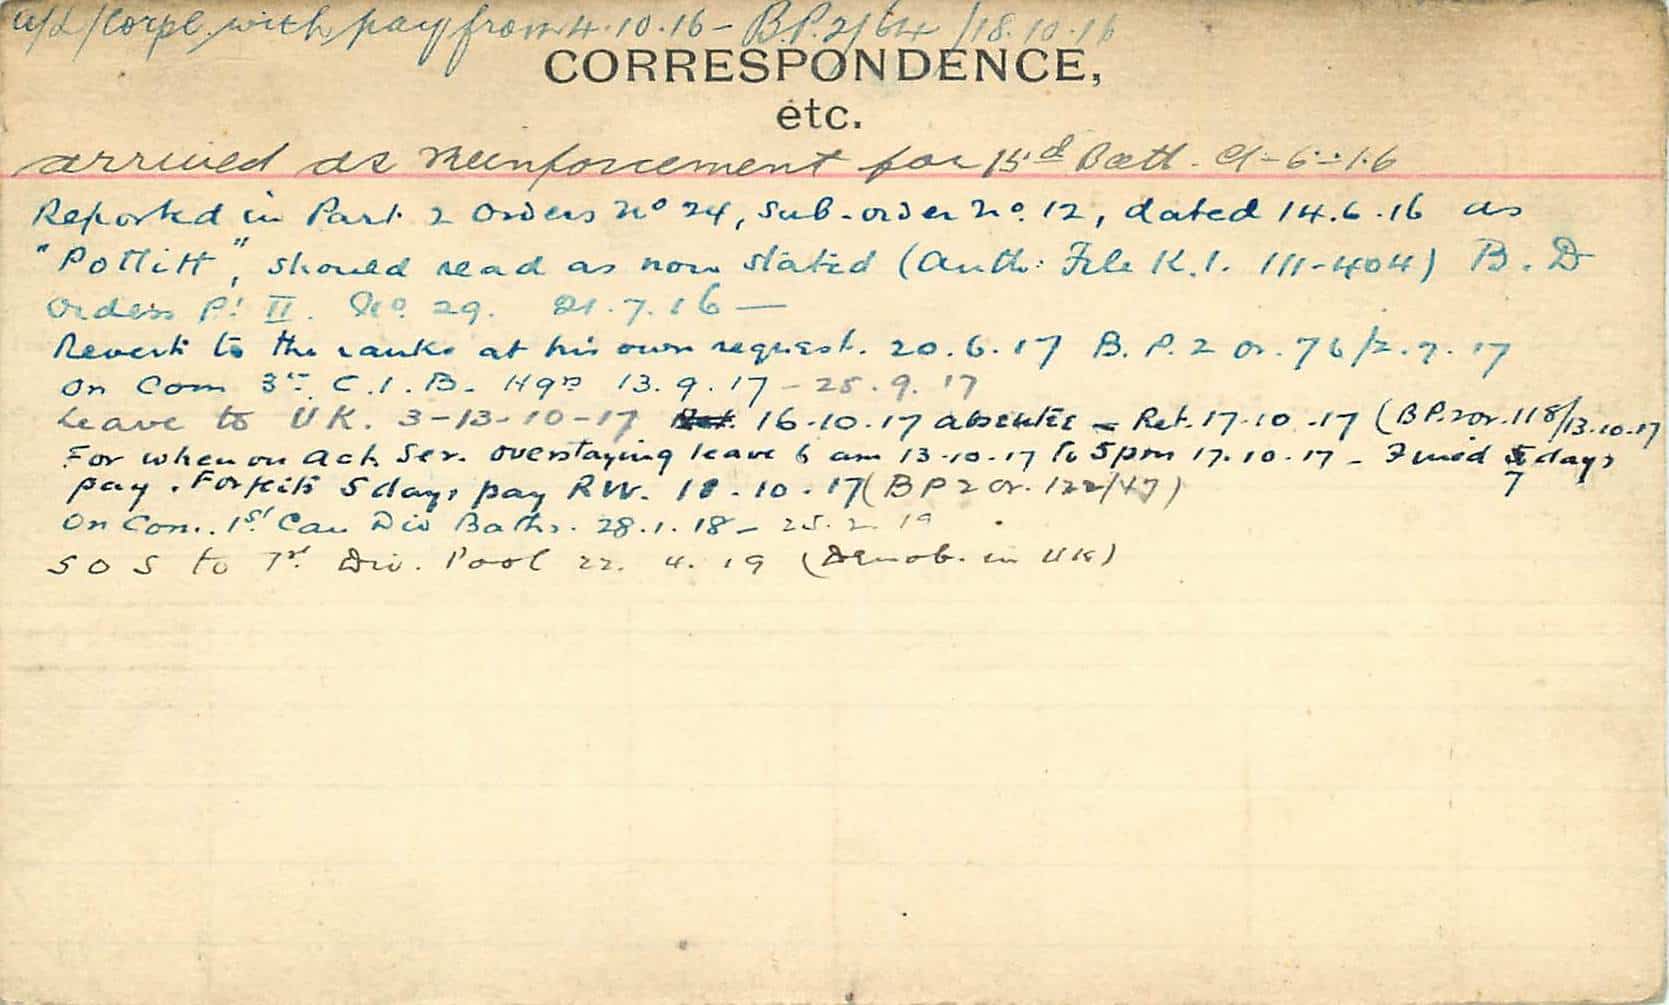 a/L/Corpl. with pay from 4.10.16 - B.P.2/64 /18.10.16
CORRESPONDENCE,
etc.
arrived as Reinforcement for 15d Batt. 9-6-16
Reported in Part 2 Orders No 24, Sub-order No. 12, dated 14.6.16 as
"Pollitt", should read as now stated (Auth: File K.1. 111-404) B.D
Orders Pt II. No. 29. 21.7.16 —
Reverts to the ranks at his own request. 20.6.17 B.P.2 or. 76/2.7.17
On Com 3rd C.I.B. Hqrs 13.9.17 - 25.9.17
Leave to UK. 3-13-10-17 16.10.17 absentee - Ret. 17.10.17 (BP.2 or. 118/13.10.17
For when on Act. Ser. overstaying leave 6 am 13.10.17 to 5pm 17.10.17 - Fined days
7
pay. Forfeits 5 days pay RW. 18.10.17 (BP 2 or. 122/47)
On Com. 1st Can Div Baths. 28.1.18 - 25.2.19
SOS to 1st Div. Pool 22.4.19 (Demob. in UK)